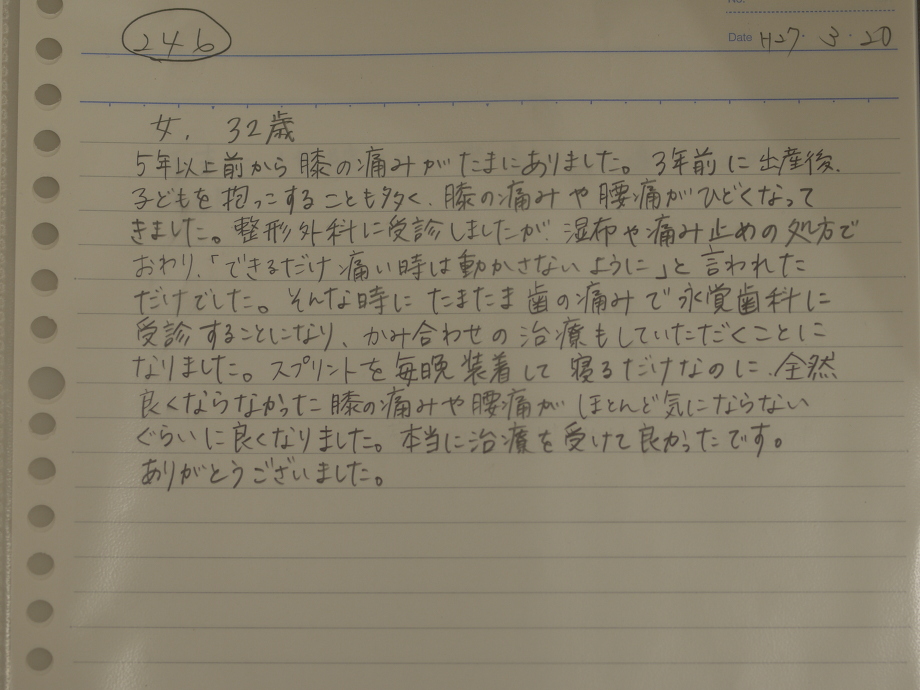 No.
246
Date H27・3・20
女、32歳
5年以上前から膝の痛みがたまにありました。3年前に出産後、
子どもを抱っこすることも多く、膝の痛みや腰痛がひどくなって
きました。整形外科に受診しましたが、湿布や痛み止めの処方で
おわり、「できるだけ痛い時は動かさないように」と言われた
だけでした。そんな時にたまたま歯の痛みで永覚歯科に
受診することになり、かみ合わせの治療もしていただくことに
なりました。スプリントを毎晩装着して寝るだけなのに、全然
良くならなかった膝の痛みや腰痛がほとんど気にならない
ぐらいに良くなりました。本当に治療を受けて良かったです。
ありがとうございました。